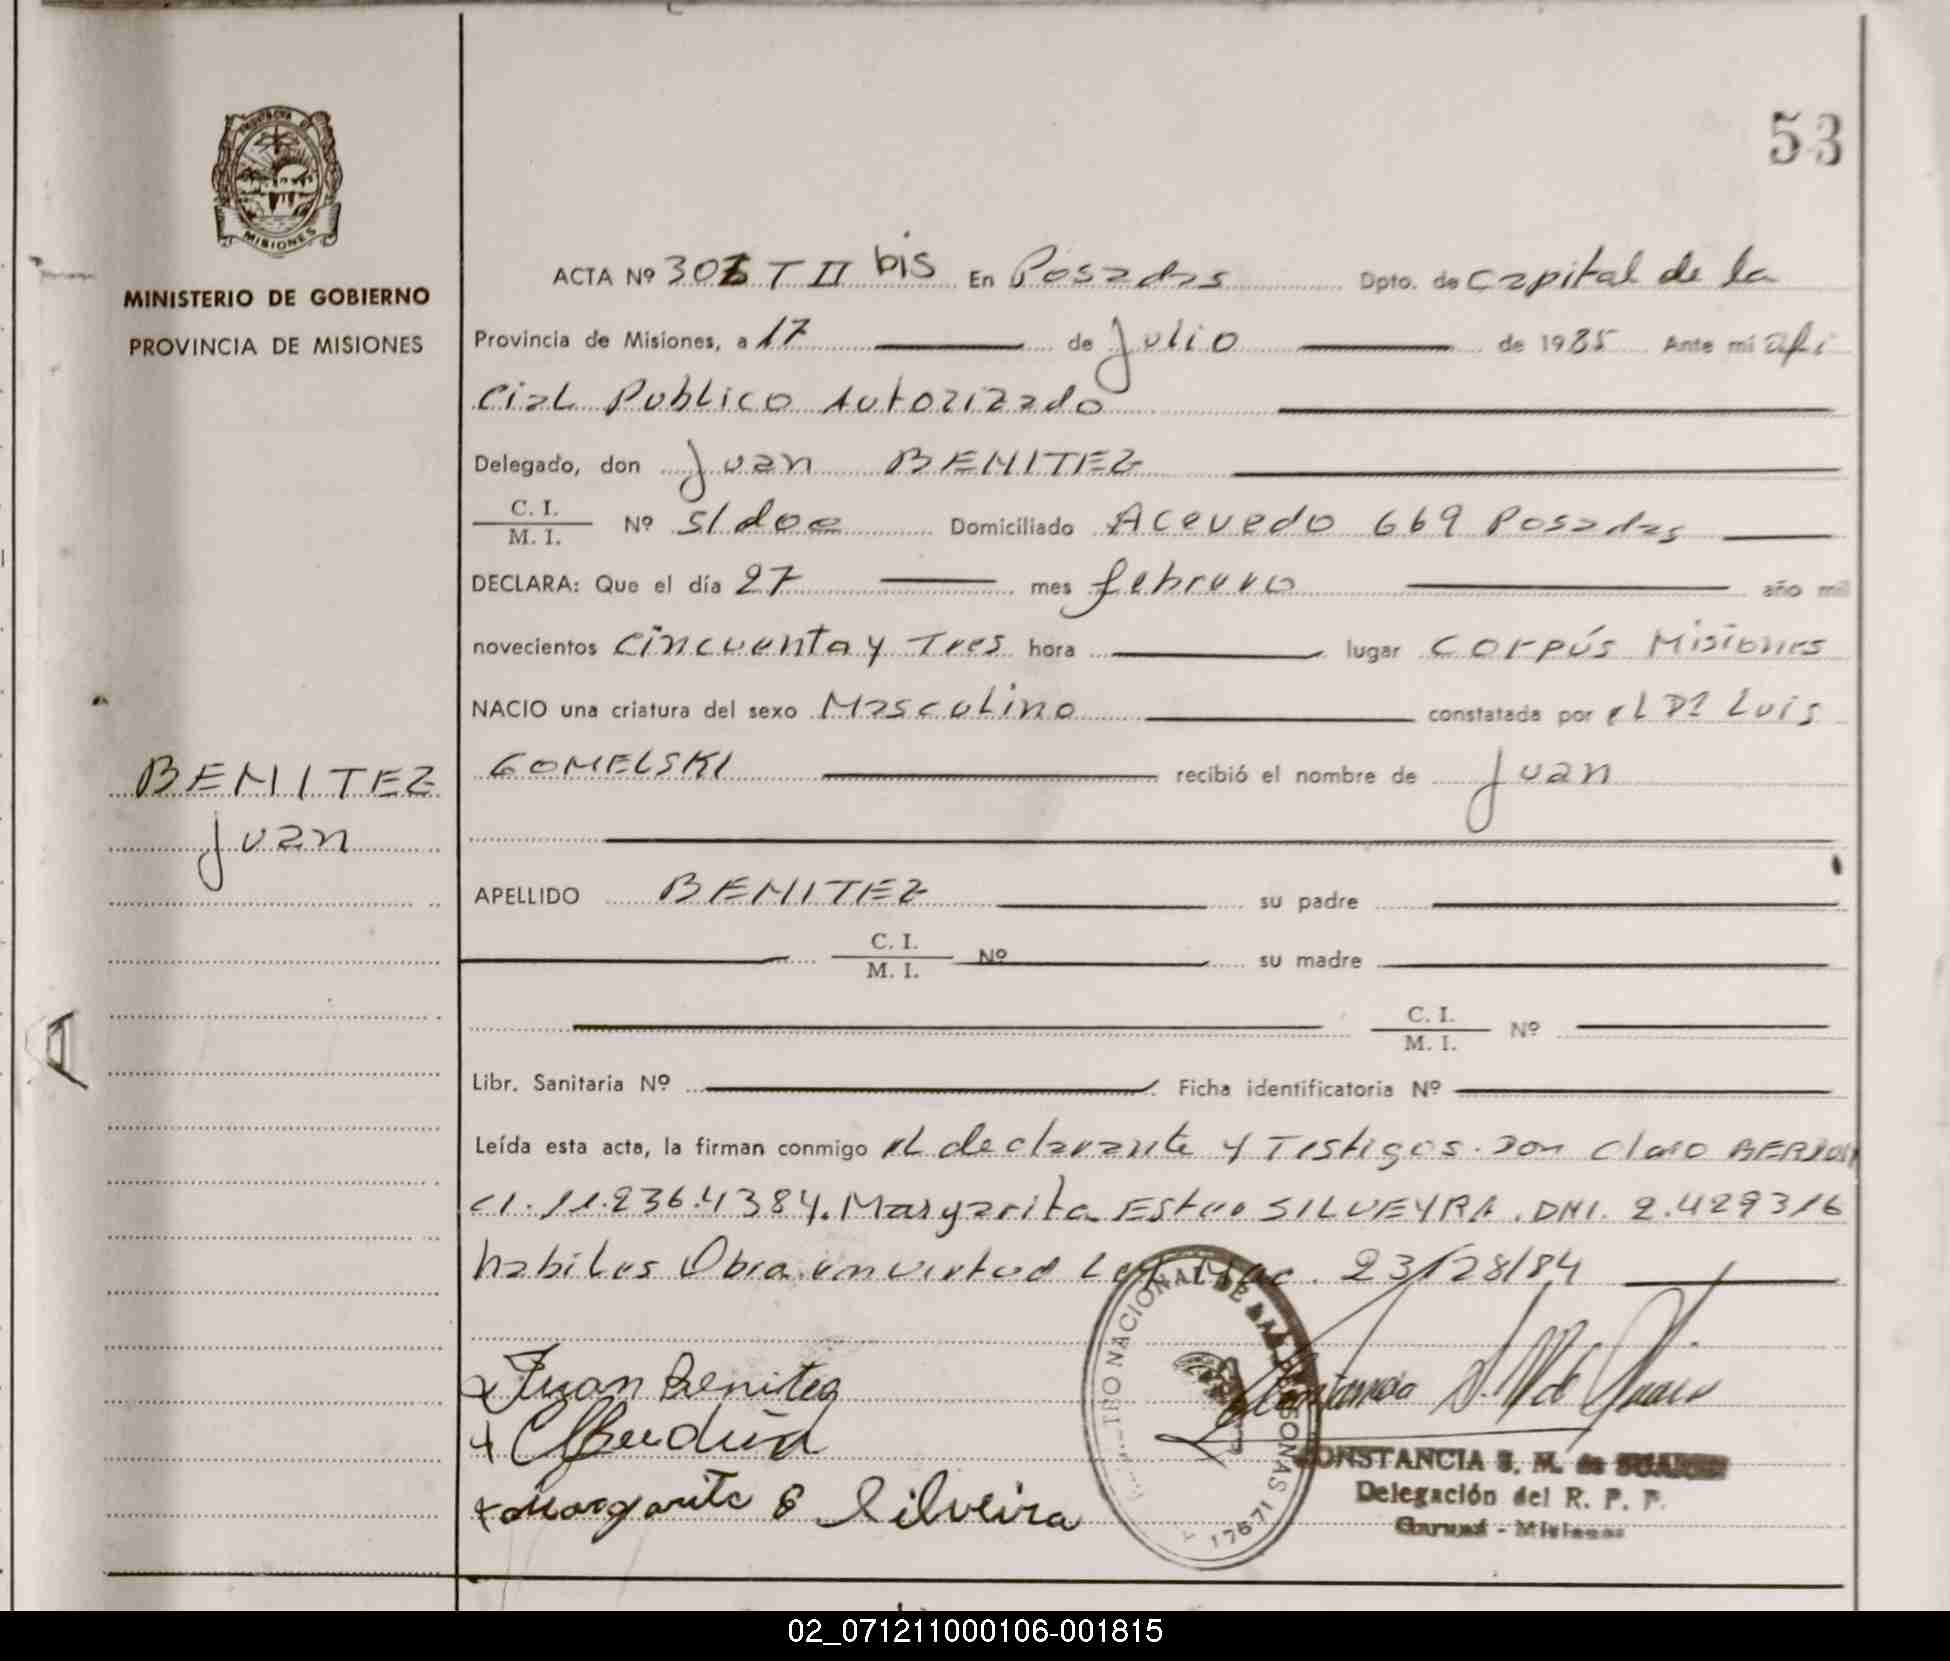 53
PROVINCIA DE
MISIONES
MINISTERIO DE GOBIERNO
PROVINCIA DE MISIONES
ACTA Nº 306 T II bis En Posadas Dpto. de Capital de la
Provincia de Misiones, a 17 de Julio de 1985 Ante mí ofi
cial Publico Autorizado
Delegado, don Juan BENITEZ
C. I.
M. I. Nº s/doc Domiciliado Acevedo 669 Posadas
DECLARA: Que el día 27 mes febrero año mil
novecientos cincuenta y Tres hora lugar Corpús Misiones
NACIO una criatura del sexo Masculino constatada por el Dr Luis
GOMELSKI recibió el nombre de Juan
BENITEZ
Juan
APELLIDO BENITEZ su padre
C. I.
M. I. Nº su madre
C. I.
M. I. Nº
Libr. Sanitaria Nº Ficha identificatoria Nº
Leída esta acta, la firman conmigo el declarante y Testigos. Don Claro
CI. 11.236.4384. Margarita Ester SILVEYRA. DNI. 2.429316
habiles Obra en virtud Ley 23/28/84
Juan Benitez
Margarita E Silveira
CONSTANCIA S. M. de SUAREZ
Delegación del R. P. P.
Garuad - Misiones
NACIONAL DE LAS PERSONAS
17671
02_071211000106-001815